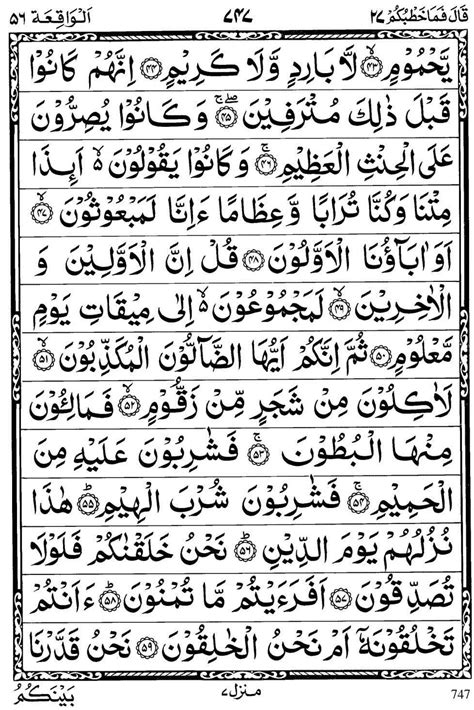 قَالَ فَمَا خَطْبُكُمْ ٢٧ ٧٤٧ اَلْوَاقِعَة ٥٦
يَّحْمُوْمٍ ﴿۴۳﴾ لَّا بَارِدٍ وَّلَا كَرِيْمٍ ﴿۴۴﴾ اِنَّهُمْ كَانُوْا
قَبْلَ ذٰلِكَ مُتْرَفِيْنَ ﴿۴۵﴾ وَكَانُوْا يُصِرُّوْنَ
عَلَى الْحِنْثِ الْعَظِيْمِ ﴿۴۶﴾ وَكَانُوْا يَقُوْلُوْنَ ۙ۬ اَىِٕذَا
مِتْنَا وَكُنَّا تُرَابًا وَّعِظَامًا ءَاِنَّا لَمَبْعُوْثُوْنَ ﴿۴۷﴾
اَوَاٰبَآؤُنَا الْاَوَّلُوْنَ ﴿۴۸﴾ قُلْ اِنَّ الْاَوَّلِيْنَ وَ
الْاٰخِرِيْنَ ﴿۴۹﴾ لَمَجْمُوْعُوْنَ ۙ۬ اِلٰى مِيْقَاتِ يَوْمٍ
مَّعْلُوْمٍ ﴿۵۰﴾ ثُمَّ اِنَّكُمْ اَيُّهَا الضَّآلُّوْنَ الْمُكَذِّبُوْنَ ﴿۵۱﴾
لَاٰكِلُوْنَ مِنْ شَجَرٍ مِّنْ زَقُّوْمٍ ﴿۵۲﴾ فَمَالِـُٔوْنَ
مِنْهَا الْبُطُوْنَ ﴿۵۳﴾ فَشٰرِبُوْنَ عَلَيْهِ مِنَ
الْحَمِيْمِ ﴿۵۴﴾ فَشٰرِبُوْنَ شُرْبَ الْهِيْمِ ﴿۵۵﴾ هٰذَا
نُزُلُهُمْ يَوْمَ الدِّيْنِ ﴿۵۶﴾ نَحْنُ خَلَقْنٰكُمْ فَلَوْلَا
تُصَدِّقُوْنَ ﴿۵۷﴾ اَفَرَءَيْتُمْ مَّا تُمْنُوْنَ ﴿۵۸﴾ ءَاَنْتُمْ
تَخْلُقُوْنَهٗٓ اَمْ نَحْنُ الْخٰلِقُوْنَ ﴿۵۹﴾ نَحْنُ قَدَّرْنَا
بَيْنَكُمُ
منزل ٧
747